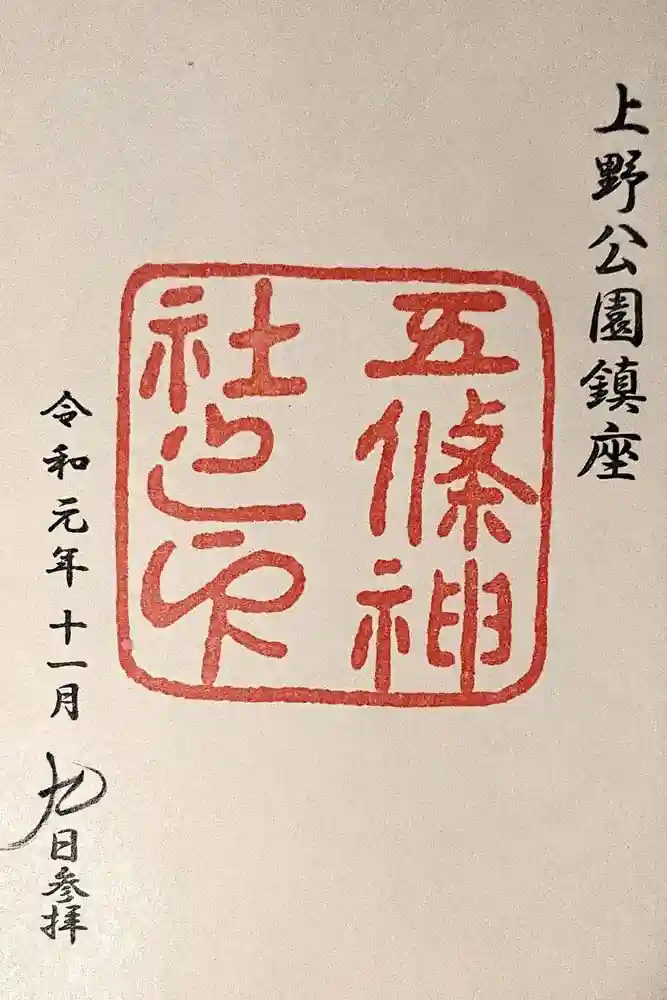 上野公園鎮座
五條神
社之印
令和元年十一月九日参拝